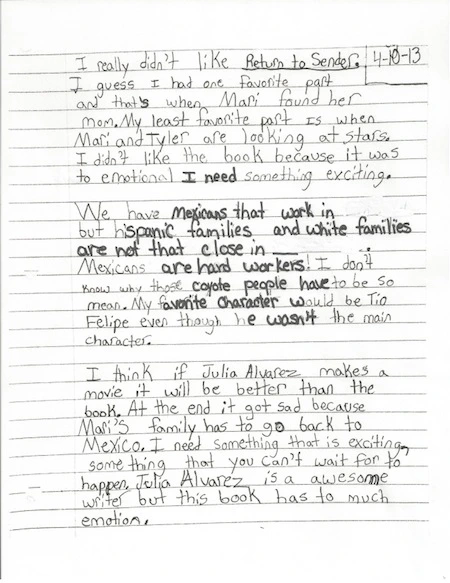 I really didn't like Return to Sender. 4-10-13
I guess I had one favorite part
and that's when Mari found her
mom. My least favorite part is when
Mari and Tyler are looking at stars.
I didn't like the book because it was
to emotional I need something exciting.
We have Mexicans that work in
but hispanic families and white families
are not that close in ____.
Mexicans are hard workers! I don't
know why those coyote people have to be so
mean. My favorite character would be Tio
Felipe even though he wasn't the main
character.
I think if Julia Alvarez makes a
movie it will be better than the
book. At the end it got sad because
Mari's family has to go back to
Mexico. I need something that is exciting,
something that you can't wait for to
happen. Julia Alvarez is a awesome
writer but this book has to much
emotion.